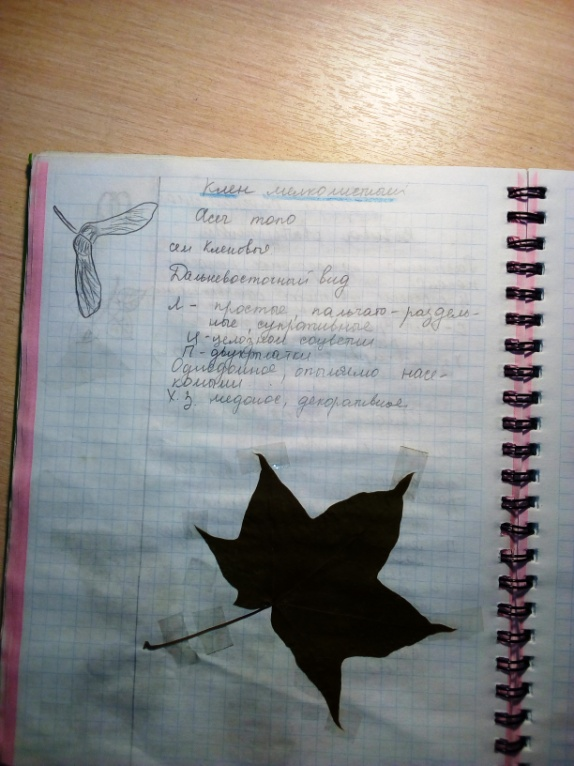 Клен мелколистный
Acer mono
сем Кленовые
Дальневосточный вид
Л - простые, пальчато-раздель-
ные, супротивные
Ц - соцветии
П - двукрылатки
Однодомное, опыляемо насе-
комыми
Х.З. медонос, декоративное